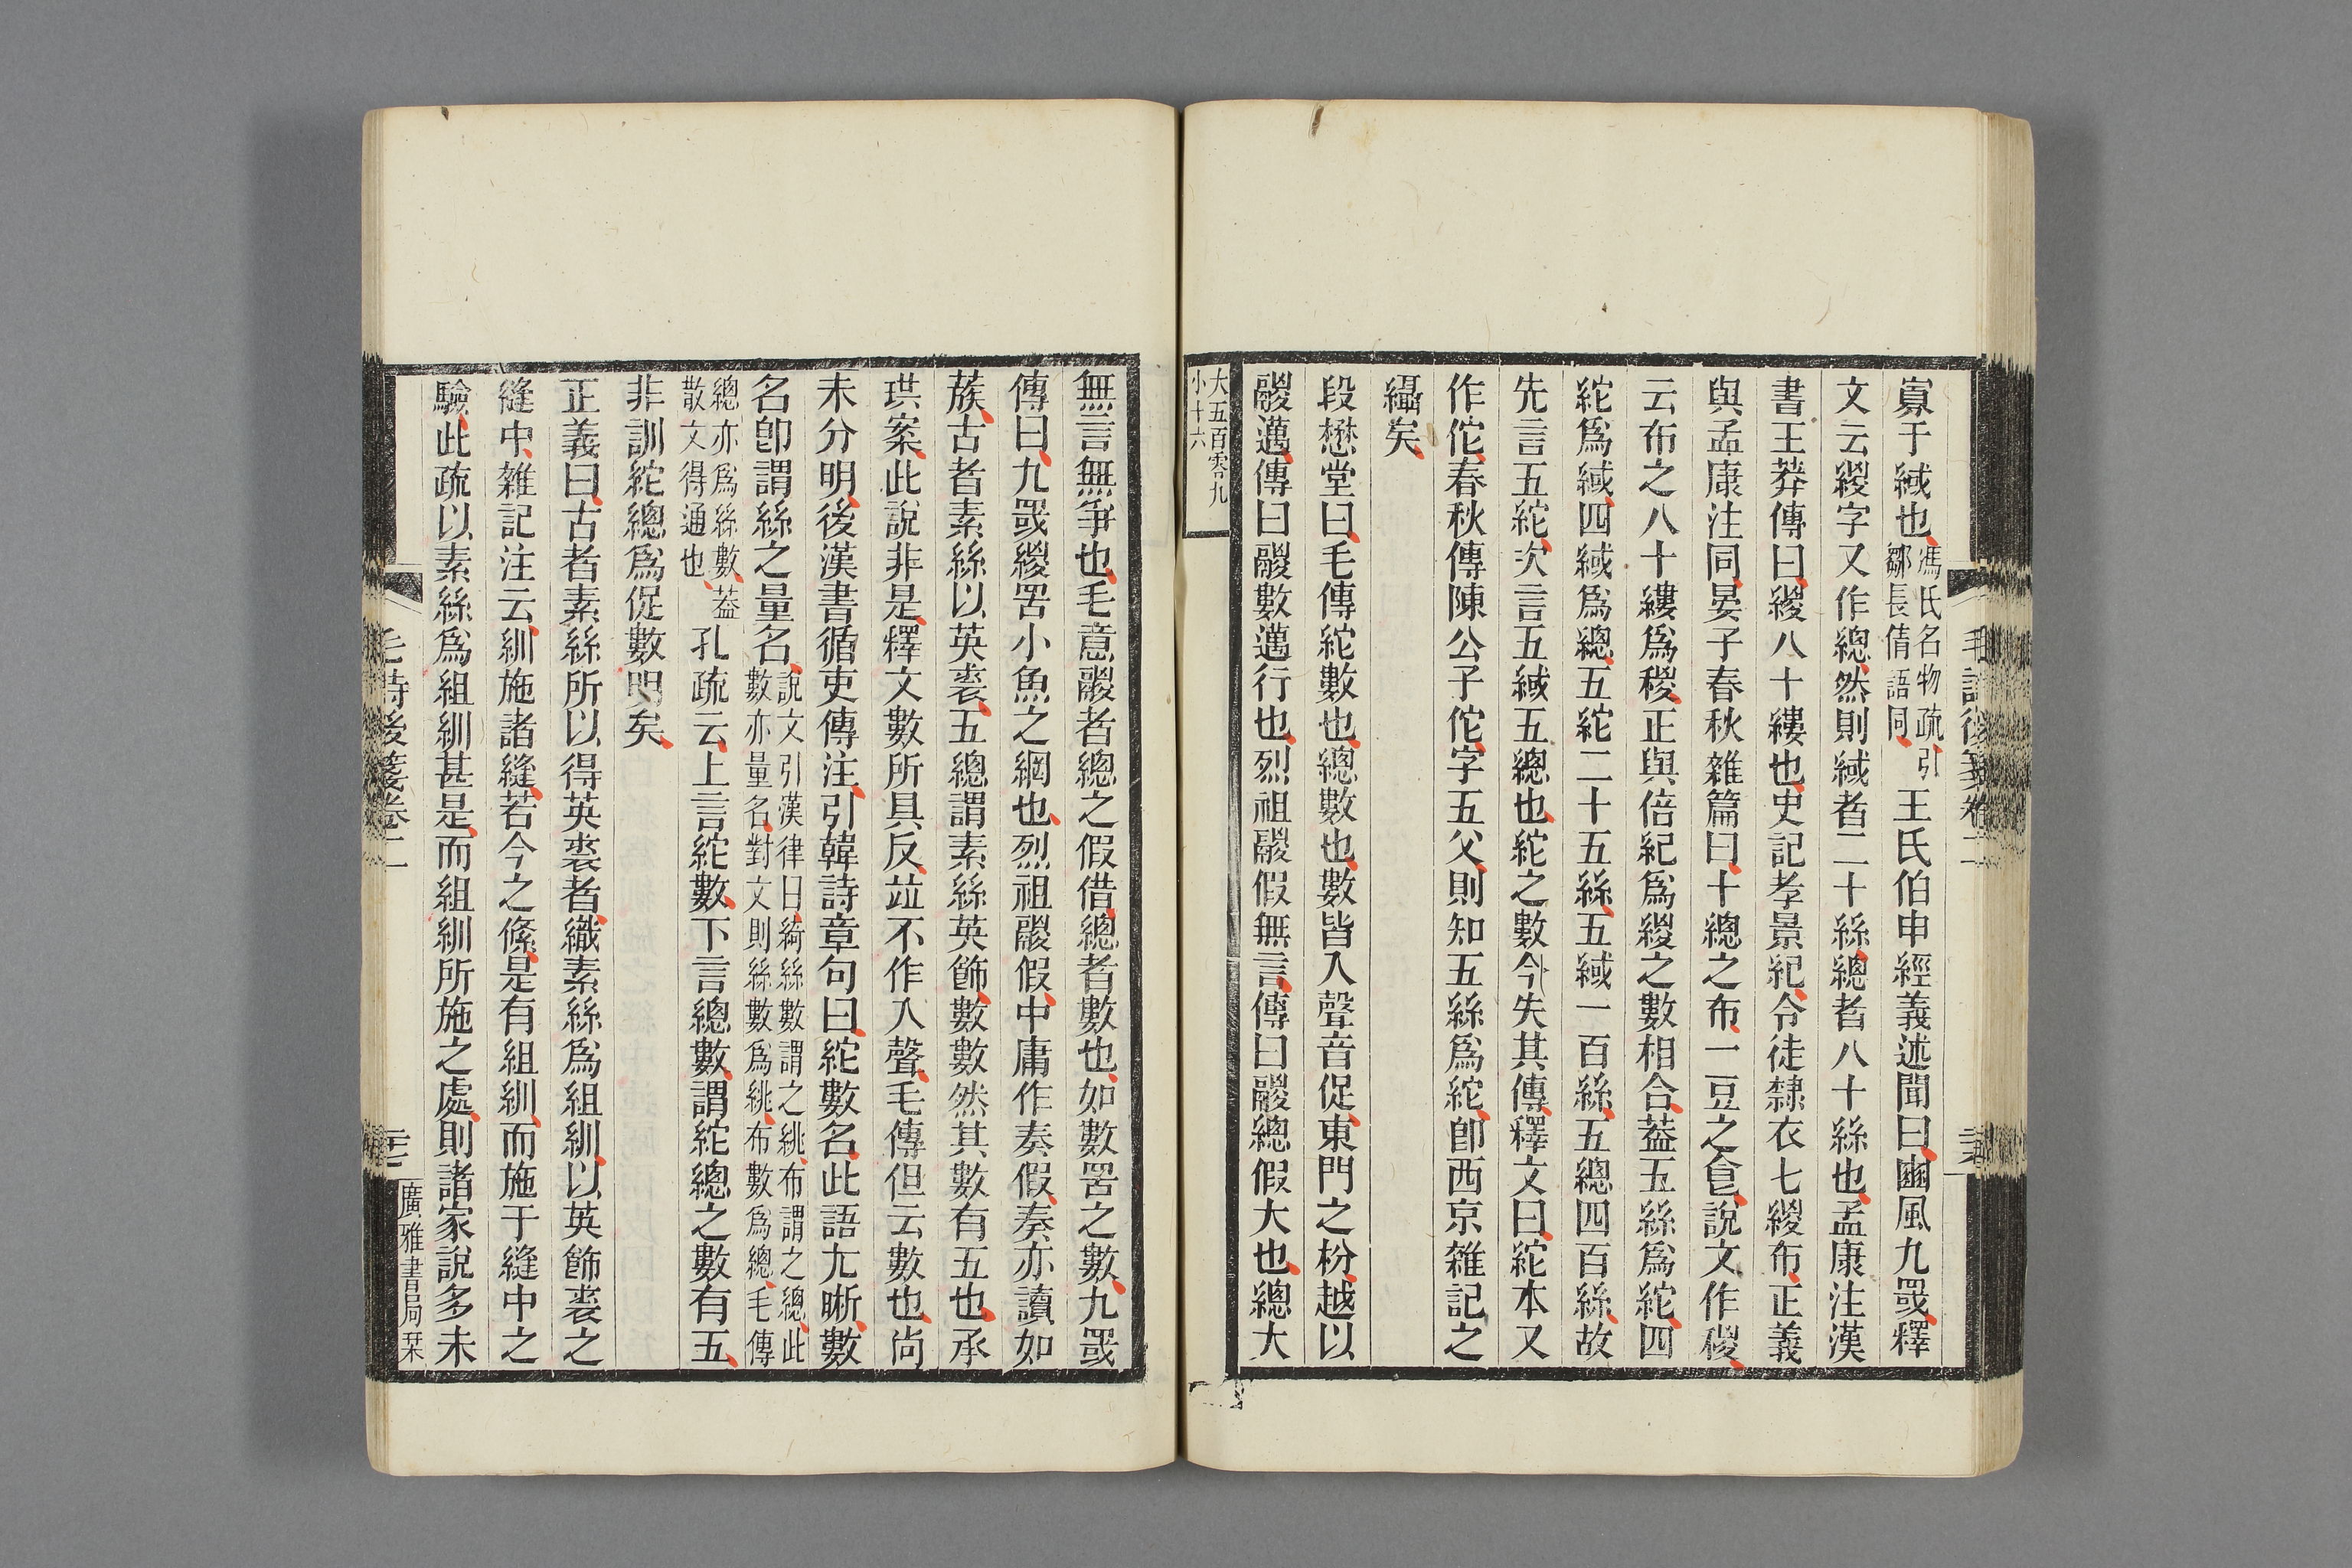 毛詩後箋卷二
寡于緎也馮氏名物疏引
鄒長倩語同王氏伯申經義述聞曰豳風九罭釋
文云緵字又作總然則緎者二十絲總者八十絲也孟康注漢
書王莽傳曰緵八十縷也史記孝景紀令徒隸衣七緵布正義
與孟康注同晏子春秋雜篇曰十總之布一豆之食說文作稯
云布之八十縷爲稯正與倍紀爲緵之數相合葢五絲爲紽四
紽爲緎四緎爲總五紽二十五絲五緎一百絲五總四百絲故
先言五紽次言五緎五總也紽之數今失其傳釋文曰紽本又
作佗春秋傳陳公子佗字五父則知五絲爲紽卽西京雜記之
䌰矣
段懋堂曰毛傳紽數也總數也數皆入聲音促東門之枌越以
鬷邁傳曰鬷數邁行也烈祖鬷假無言傳曰鬷總假大也總大
大五百零九
小十六
無言無爭也毛意鬷者總之假借總者數也如數罟之數九罭
傳曰九罭緵罟小魚之網也烈祖鬷假中庸作奏假奏亦讀如
蔟古者素絲以英裘五總謂素絲英飾數數然其數有五也承
珙案此說非是釋文數所具反竝不作入聲毛傳但云數也尙
未分明後漢書循吏傳注引韓詩章句曰紽數名此語尤晰數
名卽謂絲之量名說文引漢律曰綺絲數謂之絩布謂之總此
數亦量名對文則絲數爲絩布數爲總毛傳
總亦爲絲數葢
散文得通也孔疏云上言紽數下言總數謂紽總之數有五
非訓紽總爲促數明矣
正義曰古者素絲所以得英裘者織素絲爲組紃以英飾裘之
縫中雜記注云紃施諸縫若今之絛是有組紃而施于縫中之
驗此疏以素絲爲組紃甚是而組紃所施之處則諸家說多未
毛詩後箋卷二
廣雅書局栞